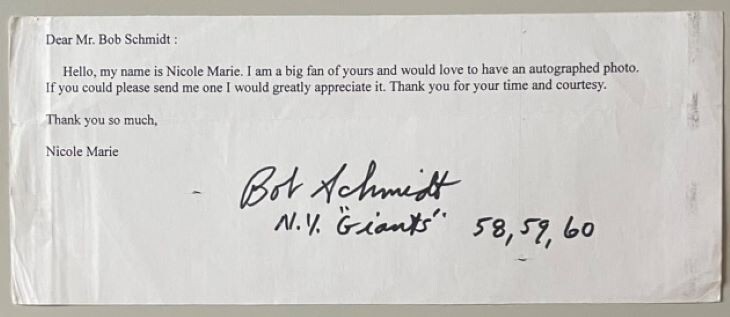 Dear Mr. Bob Schmidt :
Hello, my name is Nicole Marie. I am a big fan of yours and would love to have an autographed photo.
If you could please send me one I would greatly appreciate it. Thank you for your time and courtesy.
Thank you so much,
Nicole Marie
Bob Schmidt
N.Y. "Giants" 58, 59, 60